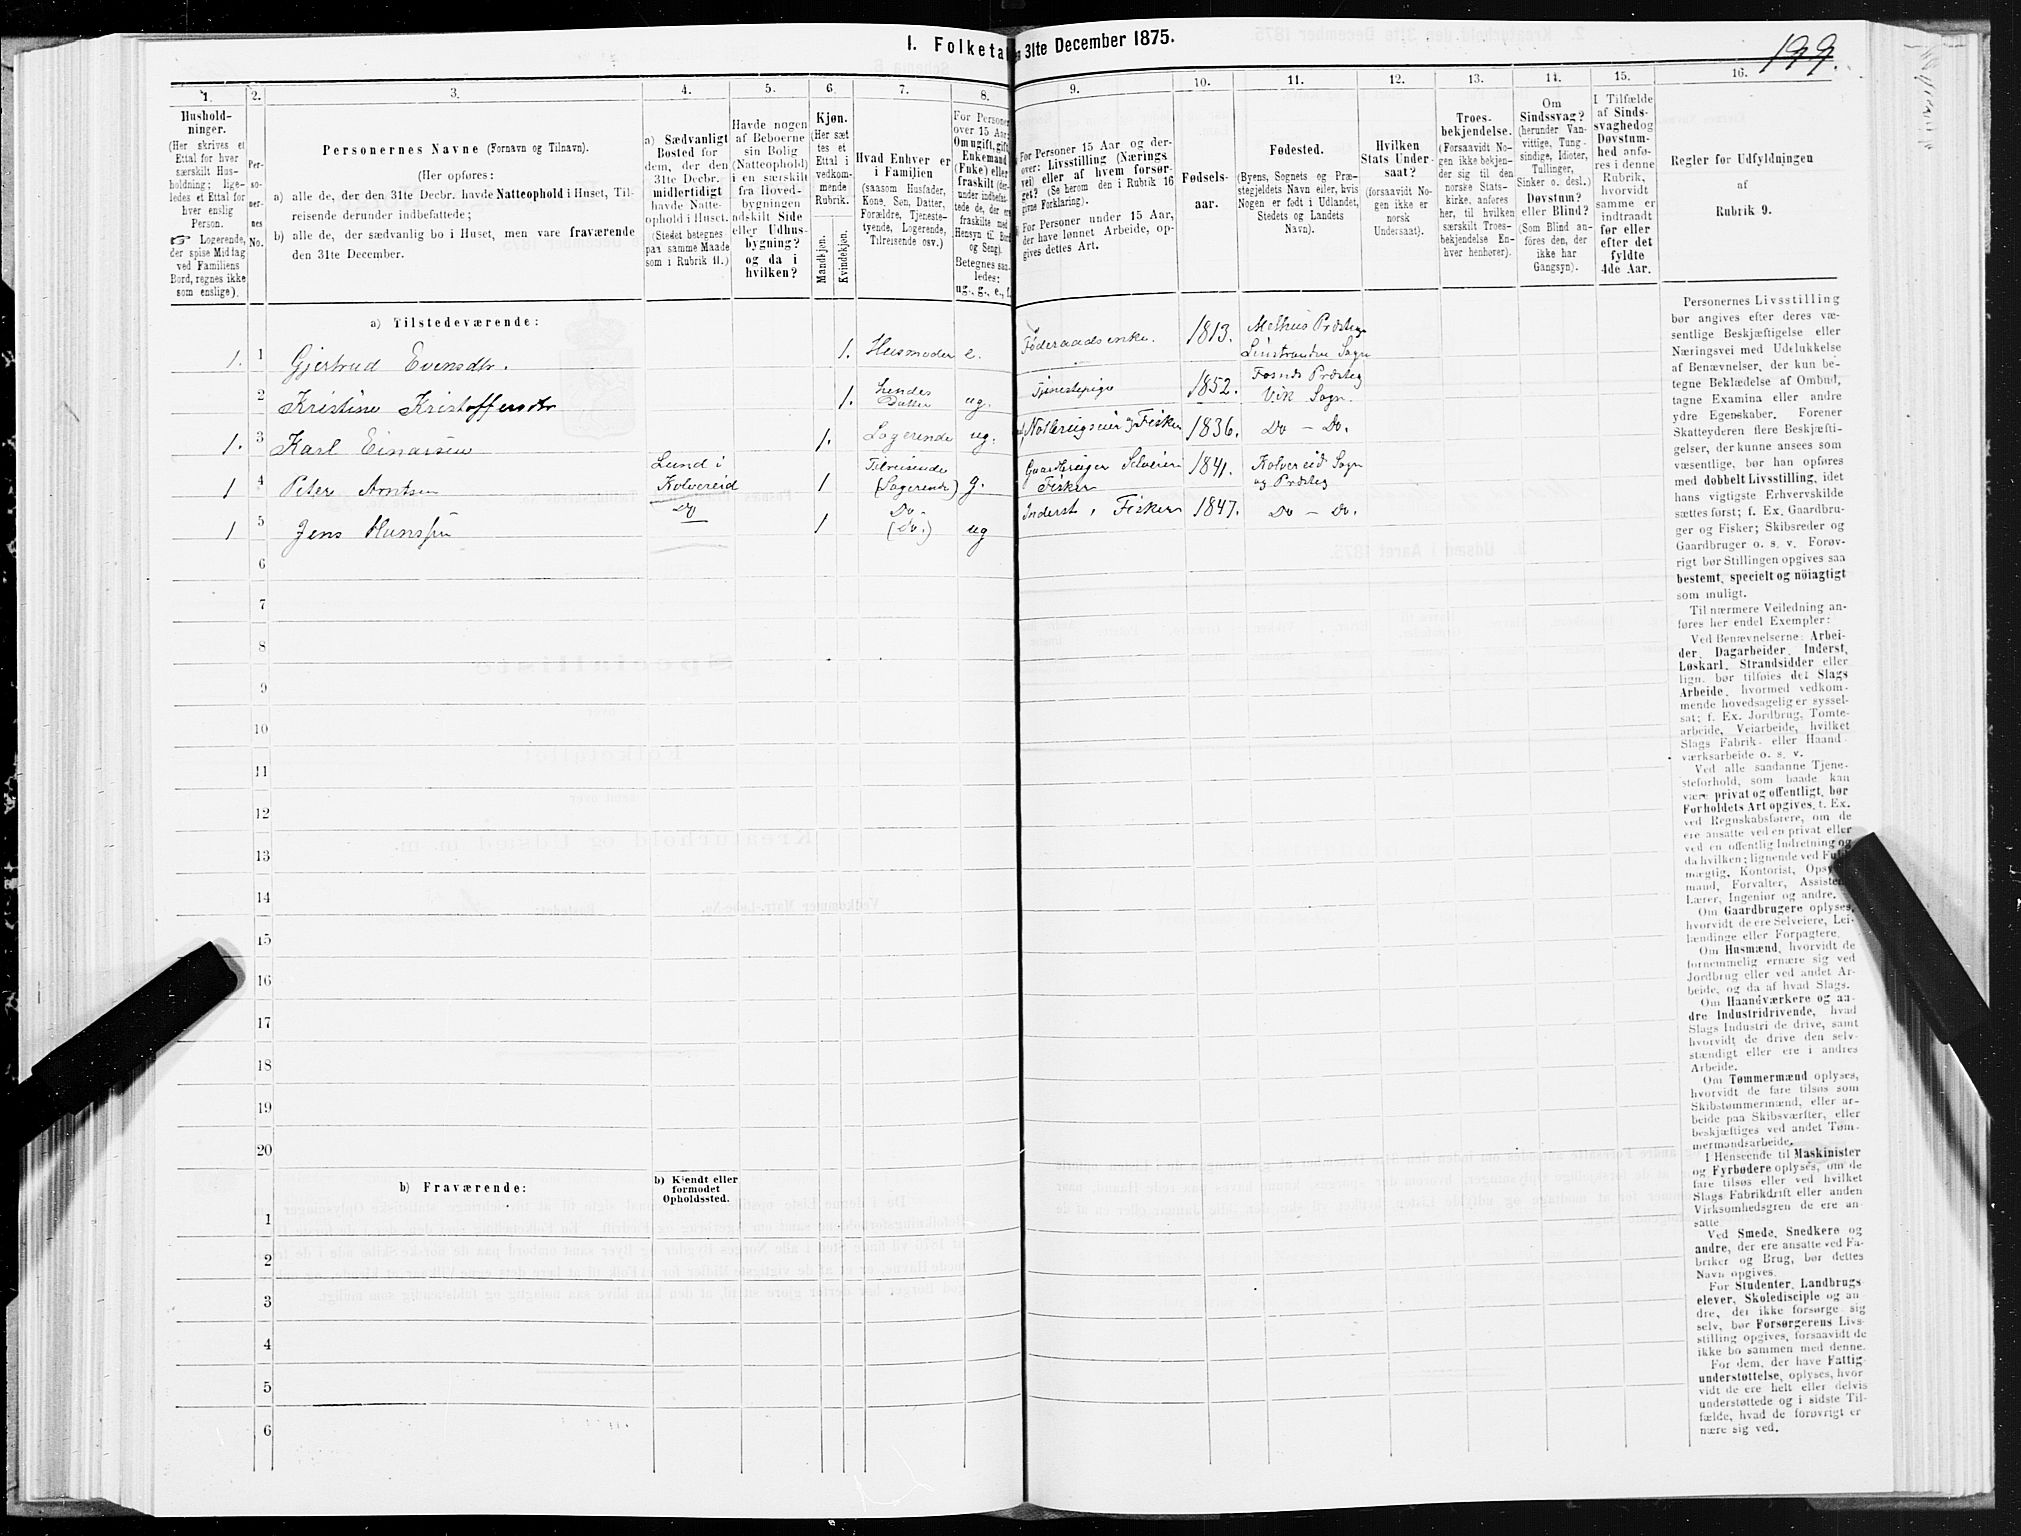 I. Folketa
31te December 1875.
199.
1.
Hushold-
ninger.
(Her skrives et
Ettal for hver
særskilt Hus-
holdning; lige-
ledes et Ettal for
hver enslig
Person.
☞ Logerende,
der spise Middag
ved Familiens
Bord, regnes ikke
som enslige).
2.
Per-
so-
ner-
nes
No.
3.
Personernes Navne (Fornavn og Tilnavn).
(Her opføres:
a) alle de, der den 31te Decbr. havde Natteophold i Huset, Til-
reisende derunder indbefattede;
b) alle de, der sædvanlig bo i Huset, men vare fraværende
den 31te December.
4.
a) Sædvanligt
Bosted for
dem, der den
31te Decbr.
midlertidigt
havde Natte-
ophold i Huset.
(Stedet betegnes
paa samme Maade
som i Rubrik 11.)
5.
Havde nogen
af Beboerne
sin Bolig
(Natteophold)
i en særskilt
fra Hoved-
bygningen
adskilt Side
eller Udhus-
bygning?
og da i
hvilken?
6.
Kjøn.
(Her sæt
tes et
Ettal i
vedkom-
mende
Rubrik.
Mandkjøn.
Kvindekjøn.
7.
Hvad Enhver er
i Familien
(saasom Husfader,
Kone, Søn, Datter,
Forældre, Tjeneste-
tyende, Logerende,
Tilreisende osv.)
8.
For Personer
over 15 Aar:
Om ugift, gift
Enkemand
(Enke) eller
fraskilt
Betegnes saa-
ledes:
ug., g., e., f.
9.
For Personer 15 Aar og der-
over: Livsstilling (Nærings
vei) eller af hvem forsør-
get? (Se herom den i Rubrik 16
givne Forklaring).
For Personer under 15 Aar,
der have lønnet Arbeide, op-
gives dettes Art.
10.
Fødsels-
aar.
11.
Fødested.
(Byens, Sognets og Præ-
stegjeldets Navn eller, hvis
Nogen er født i Udlandet,
Stedets og Landets
Navn).
12.
Hvilken
Stats Under-
saat?
(forsaavidt No-
gen ikke er
norsk
Undersaat).
13.
Troes-
bekjendelse.
(Forsaavidt No-
gen ikke bekjen-
der sig til den
norske Stats-
kirke, anføres
her, til hvilken
særskilt Troes-
bekjendelse En-
hver henhører).
14.
Om
Sindssvag?
(herunder Van-
vittige, Tung-
sindige, Idioter,
Tullinger,
Sinker o. desl.)
Døvstum?
eller Blind?
(Som Blind an-
føres den, der
ikke har
Gangsyn).
15.
I Tilfælde
af Sinds-
svaghed og
Døvstum-
hed anfø-
res i denne
Rubrik,
hvorvidt
samme er
indtraadt
før eller
efter det
fyldte
4de Aar.
16.
Regler for Udfyldningen
af
Rubrik 9.
a) Tilstedeværende:
1. 1 Gjertrud Evensdtr. 1. Husmoder e. Føderaadsenke. 1813. Melhus Præsteg Leinstranden Sogn
2 Kristine Kristoffersdtr 1. hendes Datter ug. Tjenestepige 1852. Fosnes Præsteg Vik Sogn.
1. 3 Karl Einarsen 1. Logerende ug. Notbrugseier og Fisker 1836. Do – Do.
1 4 Peter Arntsen Lund i Kolvereid 1 Tilreisende (Logerende) g. Gaardbruger Selveier Fisker 1841. Kolvereid Sogn og Præsteg
1 5 Jens Hansen Do 1 Do. (Do.) ug Inderst, Fisker 1847. Do – Do.
6
7
8
9
10
11
12
13
14
15
16
17
18
19
20
b) Fraværende:
b) Kjendt eller
formodet
Opholdssted.
1
2
3
4
5
6
Personernes Livsstilling
bør angives efter deres væ-
sentlige Beskjæftigelse eller
Næringsvei med Udelukkelse
af Benævnelser, der kun be-
tegne Beklædelse af Ombud,
tagne Examina eller andre
ydre Egenskaber. Forener
Skatteyderen flere Beskjæfti-
gelser, der kunne ansees som
væsentlige, bør han opføres
med dobbelt Livsstilling, idet
hans vigtigste Erhvervskilde
sættes først; f. Ex. Gaardbru-
ger og Fisker; Skibsreder og
Gaardbruger o. s. v. Forøv-
rigt bør Stillingen opgives saa
bestemt, specielt og nöiagtigt
som muligt.
Til nærmere Veiledning an-
føres her endel Exempler:
Ved Benævnelserne: Arbei-
der, Dagarbeider, Inderst,
Løskarl, Strandsidder eller
lign. bør tilføies det Slags
Arbeide, hvormed vedkom-
mende hovedsagelig er syssel-
sat; f. Ex. Jordbrug, Tomte-
arbeide, Veiarbeide, hvilket
Slags Fabrik- eller Haand-
værksarbeide o. s. v.
Ved alle saadanne Tjene-
steforhold, som baade kan
være privat og offentligt, bør
Forholdets Art opgives, f. Ex.
ved Regnskabsførere, om de
ere ansatte ved en privat eller
ved en offentlig Indretning og
da hvilken; lignende ved Fuld-
mægtig, Kontorist, Opsyns-
mand, Forvalter, Assistent,
Lærer, Ingeniør og andre.
Om Gaardbrugere oplyses,
hvorvidt de ere Selveiere, Lei-
lændinge eller Forpagtere.
Om Husmænd, hvorvidt de
fornemmelig ernære sig ved
Jordbrug eller ved andet Ar-
beide, og da af hvad Slags.
Om Haandværkere og an-
dre Industridrivende, hvad
Slags Industri de drive, samt
hvorvidt de drive den selv-
stændigt eller ere i andres
Arbeide.
Om Tømmermænd oplyses,
hvorvidt de fare tilsøs som
Skibstømmermænd, eller ar-
beide paa Skibsværfter, eller
beskjæftiges ved andet Tøm-
mermandsarbeide.
I Henseende til Maskinister
og Fyrbødere oplyses, om de
fare tilsøs eller ved hvilket
Slags Fabrikdrift eller anden
Virksomhedsgren de ere an-
satte
Ved Smede, Snedkere og
andre, der ere ansatte ved Fa-
briker og Brug, bør dettes
Navn opgives.
For Studenter, Landbrugs-
elever, Skoledisciple og an-
dre, der ikke forsørge sig
selv, bør Forsørgerens Livs-
stilling opgives, forsaavidt de
ikke bo sammen med denne.
For dem, der have Fattig-
understøttelse, oplyses, hvor
vidt de ere helt eller delvis
understøttede og i sidste Til-
fælde, hvad de forøvrigt er
nære sig ved.